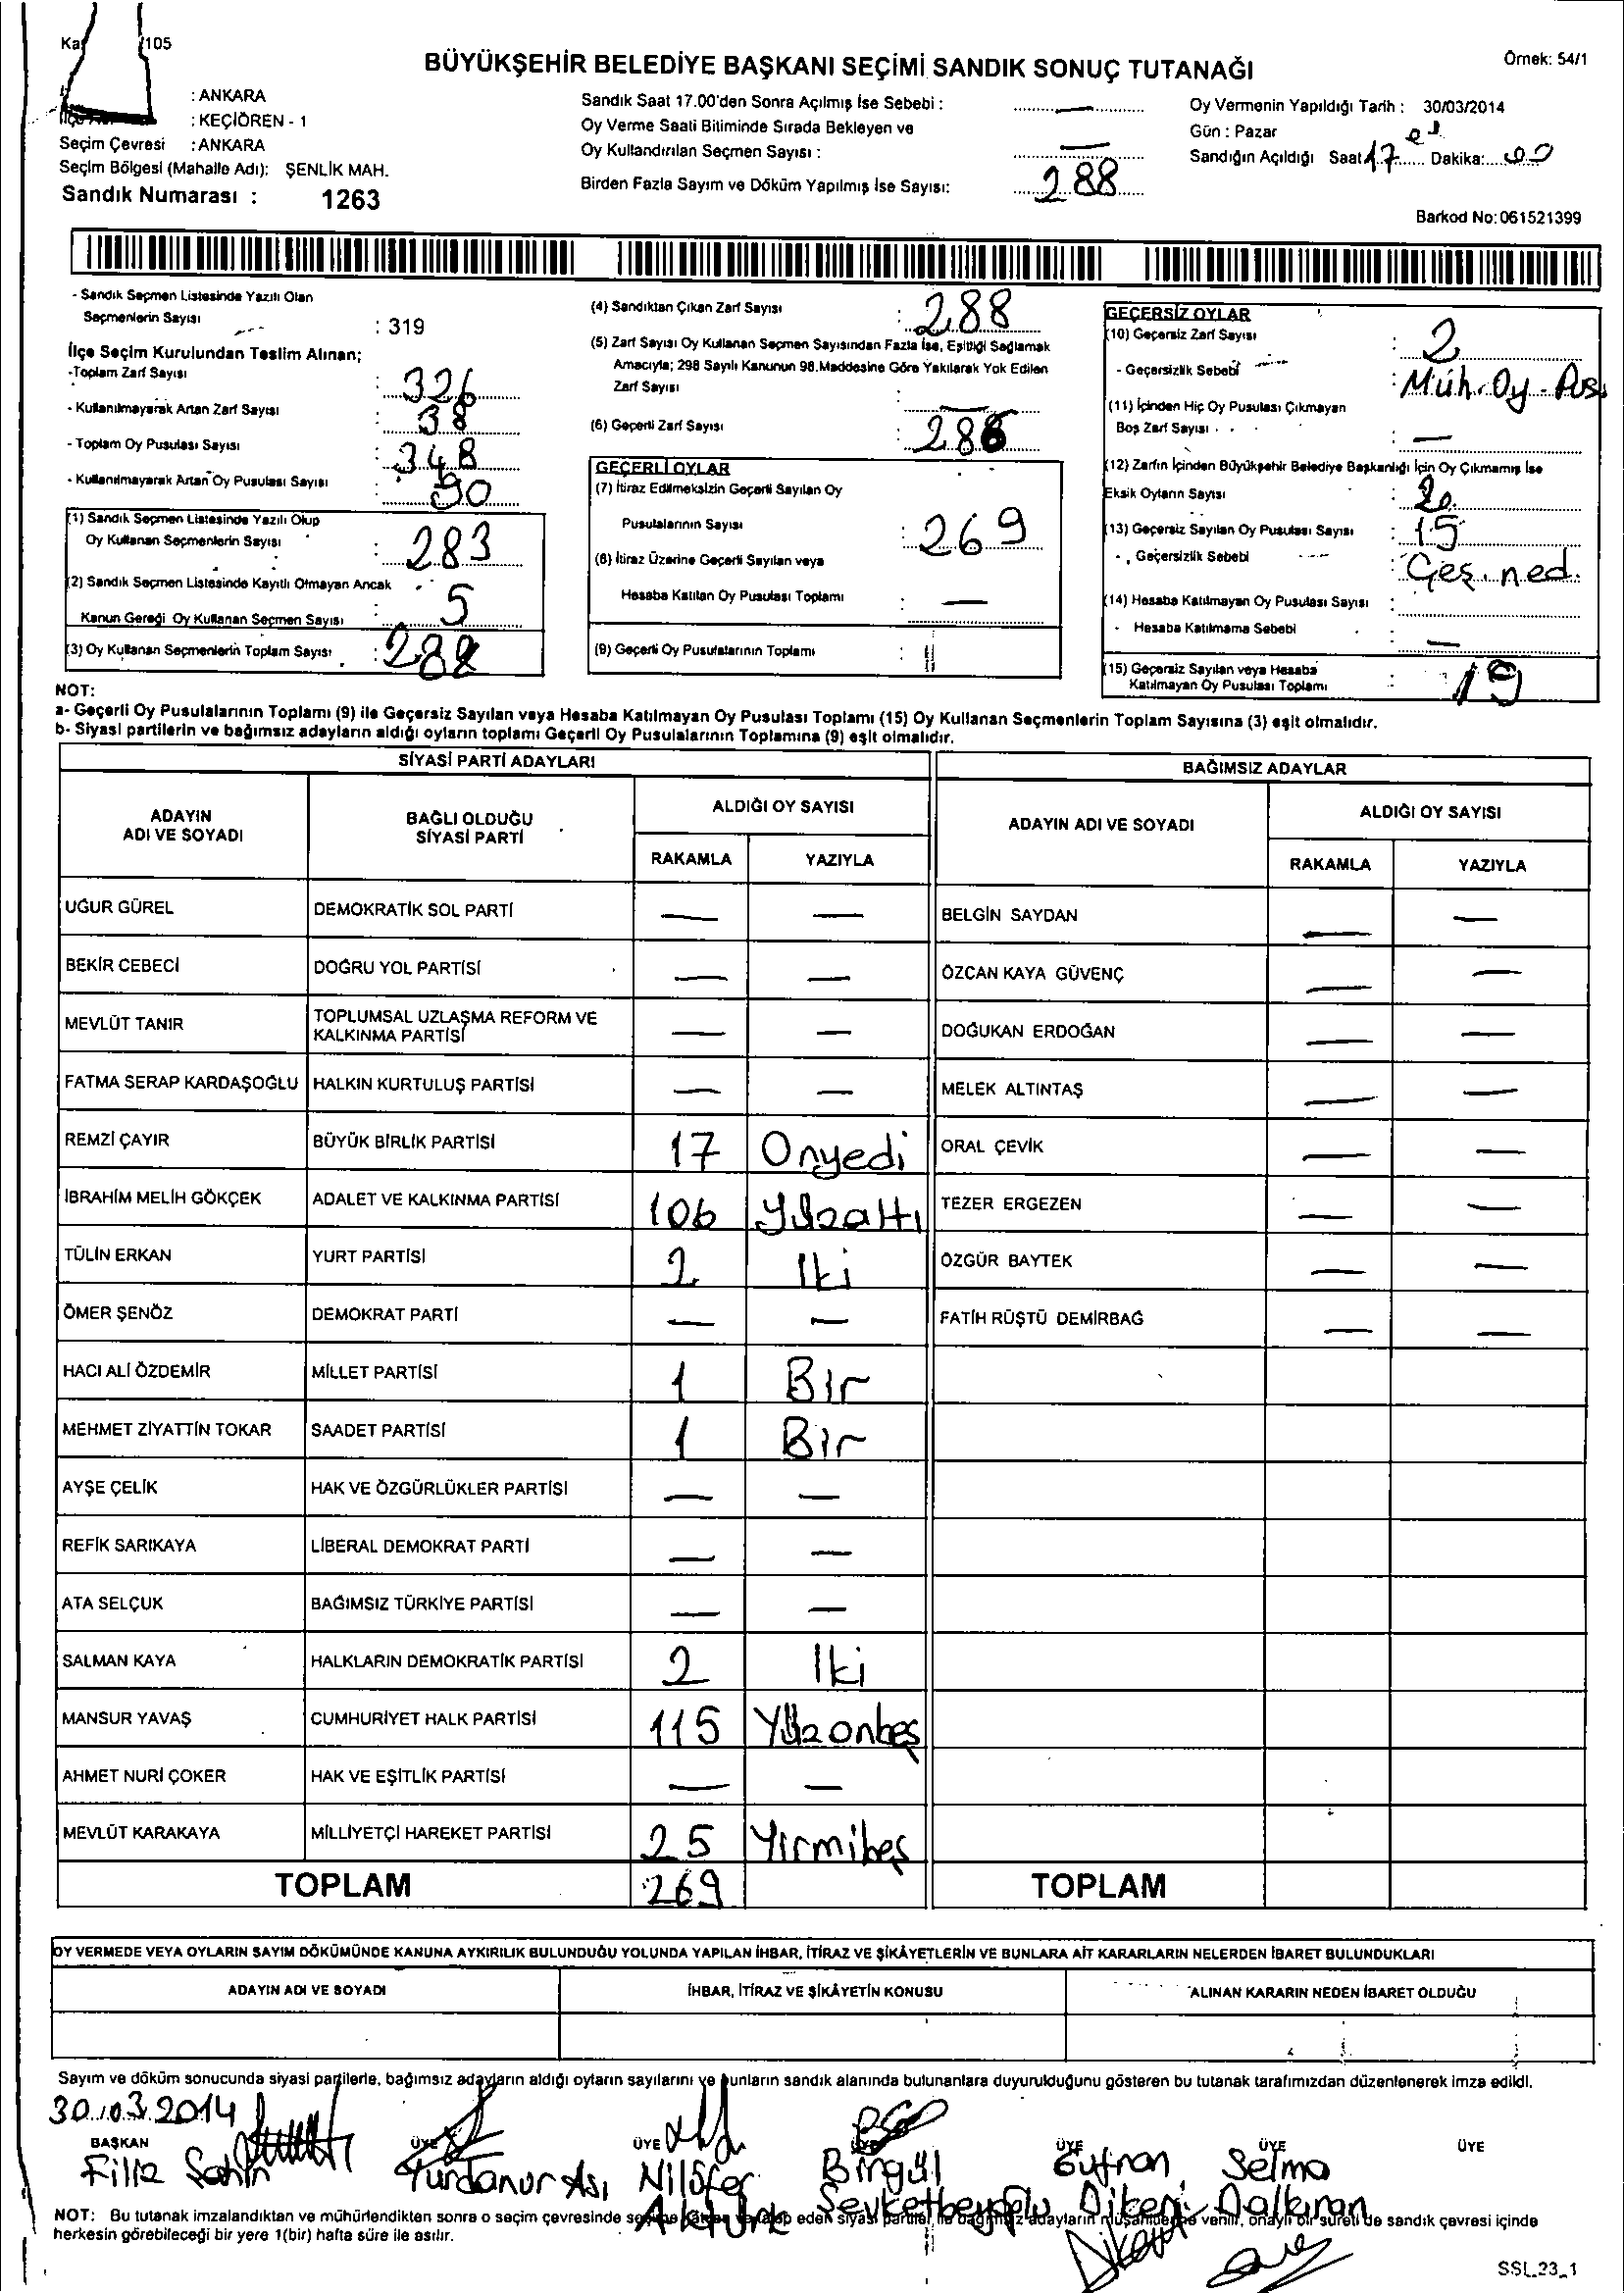 /105
Örnek: 54/1
BÜYÜKŞEHİR BELEDİYE BAŞKANI SEÇİMİ SANDIK SONUÇ TUTANAĞI
: ANKARA
: KEÇİÖREN - 1
Seçim Çevresi : ANKARA
Seçim Bölgesi (Mahalle Adı): ŞENLİK MAH.
Sandık Numarası : 1263
Sandık Saat 17.00'den Sonra Açılmış İse Sebebi : —
Oy Verme Saati Bitiminde Sırada Bekleyen ve
Oy Kullandırılan Seçmen Sayısı : —
Birden Fazla Sayım ve Döküm Yapılmış İse Sayısı: 288
Oy Vermenin Yapıldığı Tarih : 30/03/2014
Gün : Pazar
Sandığın Açıldığı Saat 17 Dakika: 00
Barkod No: 061521399
- Sandık Seçmen Listesinde Yazılı Olan
Seçmenlerin Sayısı : 319
İlçe Seçim Kurulundan Teslim Alınan;
-Toplam Zarf Sayısı : 326
- Kullanılmayarak Artan Zarf Sayısı : 38
- Toplam Oy Pusulası Sayısı : 348
- Kullanılmayarak Artan Oy Pusulası Sayısı : 90
(1) Sandık Seçmen Listesinde Yazılı Olup
Oy Kullanan Seçmenlerin Sayısı : 283
(2) Sandık Seçmen Listesinde Kayıtlı Olmayan Ancak
Kanun Gereği Oy Kullanan Seçmen Sayısı : 5
(3) Oy Kullanan Seçmenlerin Toplam Sayısı : 288
(4) Sandıktan Çıkan Zarf Sayısı : 288
(5) Zarf Sayısı Oy Kullanan Seçmen Sayısından Fazla İse, Eşitliği Sağlamak
Amacıyla; 298 Sayılı Kanunun 98.Maddesine Göre Yakılarak Yok Edilen
Zarf Sayısı : —
(6) Geçerli Zarf Sayısı : 286
GEÇERLİ OYLAR
(7) İtiraz Edilmeksizin Geçerli Sayılan Oy
Pusulalarının Sayısı : 269
(8) İtiraz Üzerine Geçerli Sayılan veya
Hesaba Katılan Oy Pusulası Toplamı : —
(9) Geçerli Oy Pusulalarının Toplamı :
GEÇERSİZ OYLAR
(10) Geçersiz Zarf Sayısı : 2
- Geçersizlik Sebebi : Müh. Oy - Pus
(11) İçinden Hiç Oy Pusulası Çıkmayan
Boş Zarf Sayısı : —
(12) Zarfın İçinden Büyükşehir Belediye Başkanlığı İçin Oy Çıkmamış İse
Eksik Oyların Sayısı :
(13) Geçersiz Sayılan Oy Pusulası Sayısı : 15
- Geçersizlik Sebebi : Çeş. ned.
(14) Hesaba Katılmayan Oy Pusulası Sayısı :
- Hesaba Katılmama Sebebi : —
(15) Geçersiz Sayılan veya Hesaba
Katılmayan Oy Pusulası Toplamı : 19
NOT:
a- Geçerli Oy Pusulalarının Toplamı (9) ile Geçersiz Sayılan veya Hesaba Katılmayan Oy Pusulası Toplamı (15) Oy Kullanan Seçmenlerin Toplam Sayısına (3) eşit olmalıdır.
b- Siyasi partilerin ve bağımsız adayların aldığı oyların toplamı Geçerli Oy Pusulalarının Toplamına (9) eşit olmalıdır.
SİYASİ PARTİ ADAYLARI
ADAYIN ADI VE SOYADI BAĞLI OLDUĞU SİYASİ PARTİ ALDIĞI OY SAYISI
RAKAMLA YAZIYLA
UĞUR GÜREL DEMOKRATİK SOL PARTİ — —
BEKİR CEBECİ DOĞRU YOL PARTİSİ — —
MEVLÜT TANIR TOPLUMSAL UZLAŞMA REFORM VE KALKINMA PARTİSİ — —
FATMA SERAP KARDAŞOĞLU HALKIN KURTULUŞ PARTİSİ — —
REMZİ ÇAYIR BÜYÜK BİRLİK PARTİSİ 17 Onyedi
İBRAHİM MELİH GÖKÇEK ADALET VE KALKINMA PARTİSİ 106 Yüzaltı
TÜLİN ERKAN YURT PARTİSİ 2 İki
ÖMER ŞENÖZ DEMOKRAT PARTİ — —
HACI ALİ ÖZDEMİR MİLLET PARTİSİ 1 Bir
MEHMET ZİYATTİN TOKAR SAADET PARTİSİ 1 Bir
AYŞE ÇELİK HAK VE ÖZGÜRLÜKLER PARTİSİ — —
REFİK SARIKAYA LİBERAL DEMOKRAT PARTİ — —
ATA SELÇUK BAĞIMSIZ TÜRKİYE PARTİSİ — —
SALMAN KAYA HALKLARIN DEMOKRATİK PARTİSİ 2 İki
MANSUR YAVAŞ CUMHURİYET HALK PARTİSİ 115 Yüzonbeş
AHMET NURİ ÇOKER HAK VE EŞİTLİK PARTİSİ — —
MEVLÜT KARAKAYA MİLLİYETÇİ HAREKET PARTİSİ 25 Yirmibeş
TOPLAM 269
BAĞIMSIZ ADAYLAR
ADAYIN ADI VE SOYADI ALDIĞI OY SAYISI
RAKAMLA YAZIYLA
BELGİN SAYDAN — —
ÖZCAN KAYA GÜVENÇ — —
DOĞUKAN ERDOĞAN — —
MELEK ALTINTAŞ — —
ORAL ÇEVİK — —
TEZER ERGEZEN — —
ÖZGÜR BAYTEK — —
FATİH RÜŞTÜ DEMİRBAĞ — —
TOPLAM
OY VERMEDE VEYA OYLARIN SAYIM DÖKÜMÜNDE KANUNA AYKIRILIK BULUNDUĞU YOLUNDA YAPILAN İHBAR, İTİRAZ VE ŞİKÂYETLERİN VE BUNLARA AİT KARARLARIN NELERDEN İBARET BULUNDUKLARI
ADAYIN ADI VE SOYADI İHBAR, İTİRAZ VE ŞİKÂYETİN KONUSU ALINAN KARARIN NEDEN İBARET OLDUĞU
Sayım ve döküm sonucunda siyasi partilerle, bağımsız adayların aldığı oyların sayılarını ve bunların sandık alanında bulunanlara duyurulduğunu gösteren bu tutanak tarafımızdan düzenlenerek imza edildi.
30.03.2014
BAŞKAN ÜYE ÜYE ÜYE ÜYE ÜYE
Filiz Şahin Nilüfer Aktürk Birgül Şevketbeyoğlu Gufran Dikeni Selma Dalkıran
NOT: Bu tutanak imzalandıktan ve mühürlendikten sonra o seçim çevresinde eden siyasi sandık çevresi içinde
herkesin görebileceği bir yere 1(bir) hafta süre ile asılır.
SSL_23_1